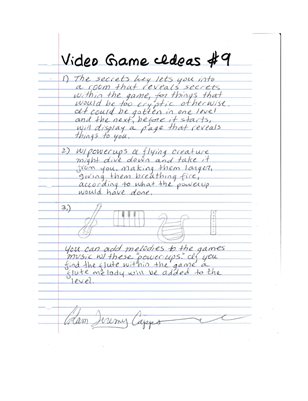 Video Game Ideas #9
1) The secrets key lets you into
a room that reveals secrets
within the game, for things that
would be too cryptic otherwise.
It could be gotten in one level
and the next, before it starts,
will display a page that reveals
things to you.
2) w/powerups a flying creature
might dive down and take it
from you, making them larger,
giving them breathing fire,
according to what the powerup
would have done.
3.)
You can add melodies to the games
music w/these "powerups". If you
find the flute within the game a
flute melody will be added to the
level.
Adam Jeremy Capps